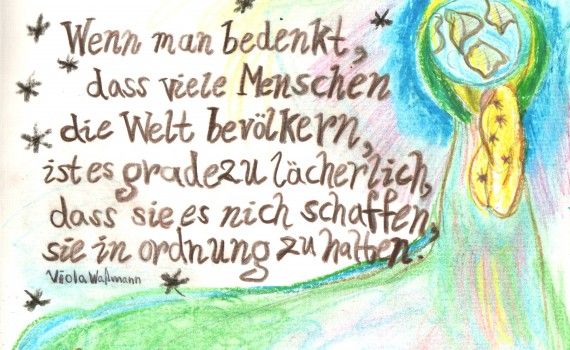 Wenn man bedenkt,
dass viele Menschen
die Welt bevölkern,
ist es gradezu lächerlich,
dass sie es nich schaffen,
sie in ordnung zu halten.
Viola Waßmann